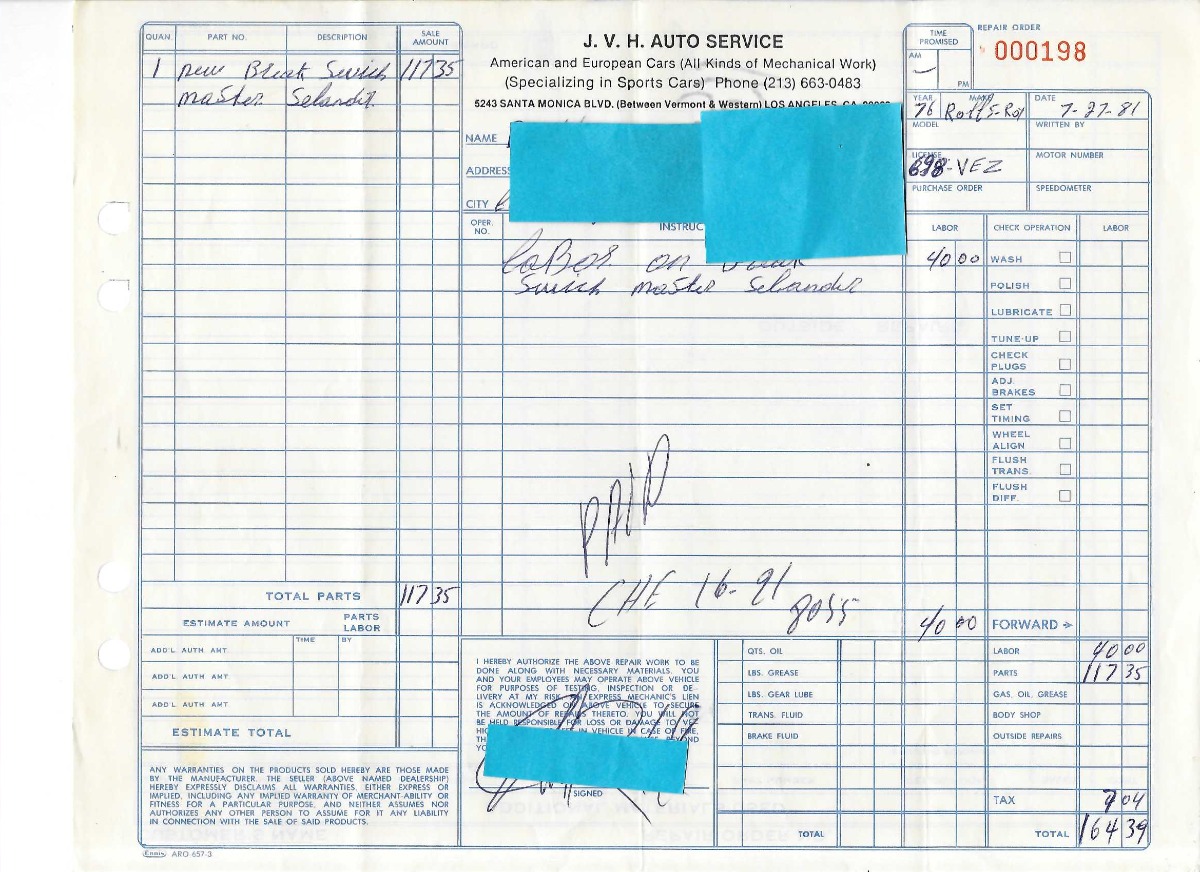 QUAN.
PART NO.
DESCRIPTION
SALE AMOUNT
1 new Break Swich 117 35
master Selandit
TOTAL PARTS 117 35
ESTIMATE AMOUNT
PARTS
LABOR
TIME
BY
ADD'L. AUTH. AMT.
ADD'L. AUTH. AMT.
ADD'L. AUTH. AMT.
ESTIMATE TOTAL
ANY WARRANTIES ON THE PRODUCTS SOLD HEREBY ARE THOSE MADE
BY THE MANUFACTURER. THE SELLER (ABOVE NAMED DEALERSHIP)
HEREBY EXPRESSLY DISCLAIMS ALL WARRANTIES, EITHER EXPRESS OR
IMPLIED, INCLUDING ANY IMPLIED WARRANTY OF MERCHANT-ABILITY OR
FITNESS FOR A PARTICULAR PURPOSE, AND NEITHER ASSUMES NOR
AUTHORIZES ANY OTHER PERSON TO ASSUME FOR IT ANY LIABILITY
IN CONNECTION WITH THE SALE OF SAID PRODUCTS.
Ennis ARO 657-3
J. V. H. AUTO SERVICE
American and European Cars (All Kinds of Mechanical Work)
(Specializing in Sports Cars) Phone (213) 663-0483
5243 SANTA MONICA BLVD. (Between Vermont & Western) LOS ANGELES, CA.
NAME
ADDRESS
CITY
OPER. NO.
INSTRUC
LABOR
laBor on 40 00
Swich master Selander
PAID
CHE 16-21
8055
40 00 FORWARD
TIME PROMISED
AM
PM
REPAIR ORDER
000198
YEAR 76
MAKE Rolls-Roy
DATE 7-27-81
MODEL
WRITTEN BY
LICENSE 698-VEZ
MOTOR NUMBER
PURCHASE ORDER
SPEEDOMETER
CHECK OPERATION
LABOR
WASH
POLISH
LUBRICATE
TUNE-UP
CHECK PLUGS
ADJ. BRAKES
SET TIMING
WHEEL ALIGN
FLUSH TRANS.
FLUSH DIFF.
I HEREBY AUTHORIZE THE ABOVE REPAIR WORK TO BE
DONE ALONG WITH NECESSARY MATERIALS. YOU
AND YOUR EMPLOYEES MAY OPERATE ABOVE VEHICLE
FOR PURPOSES OF TESTING, INSPECTION OR DE-
LIVERY AT MY RISK. AN EXPRESS MECHANIC'S LIEN
IS ACKNOWLEDGED ON ABOVE VEHICLE TO SECURE
THE AMOUNT OF REPAIRS THERETO. YOU WILL NOT
BE HELD RESPONSIBLE FOR LOSS OR DAMAGE TO VE-
IN VEHICLE IN CASE OF FIRE,
SIGNED
QTS. OIL
LBS. GREASE
LBS. GEAR LUBE
TRANS. FLUID
BRAKE FLUID
TOTAL
LABOR 40 00
PARTS 117 35
GAS, OIL, GREASE
BODY SHOP
OUTSIDE REPAIRS
TAX 7 04
TOTAL 164 39